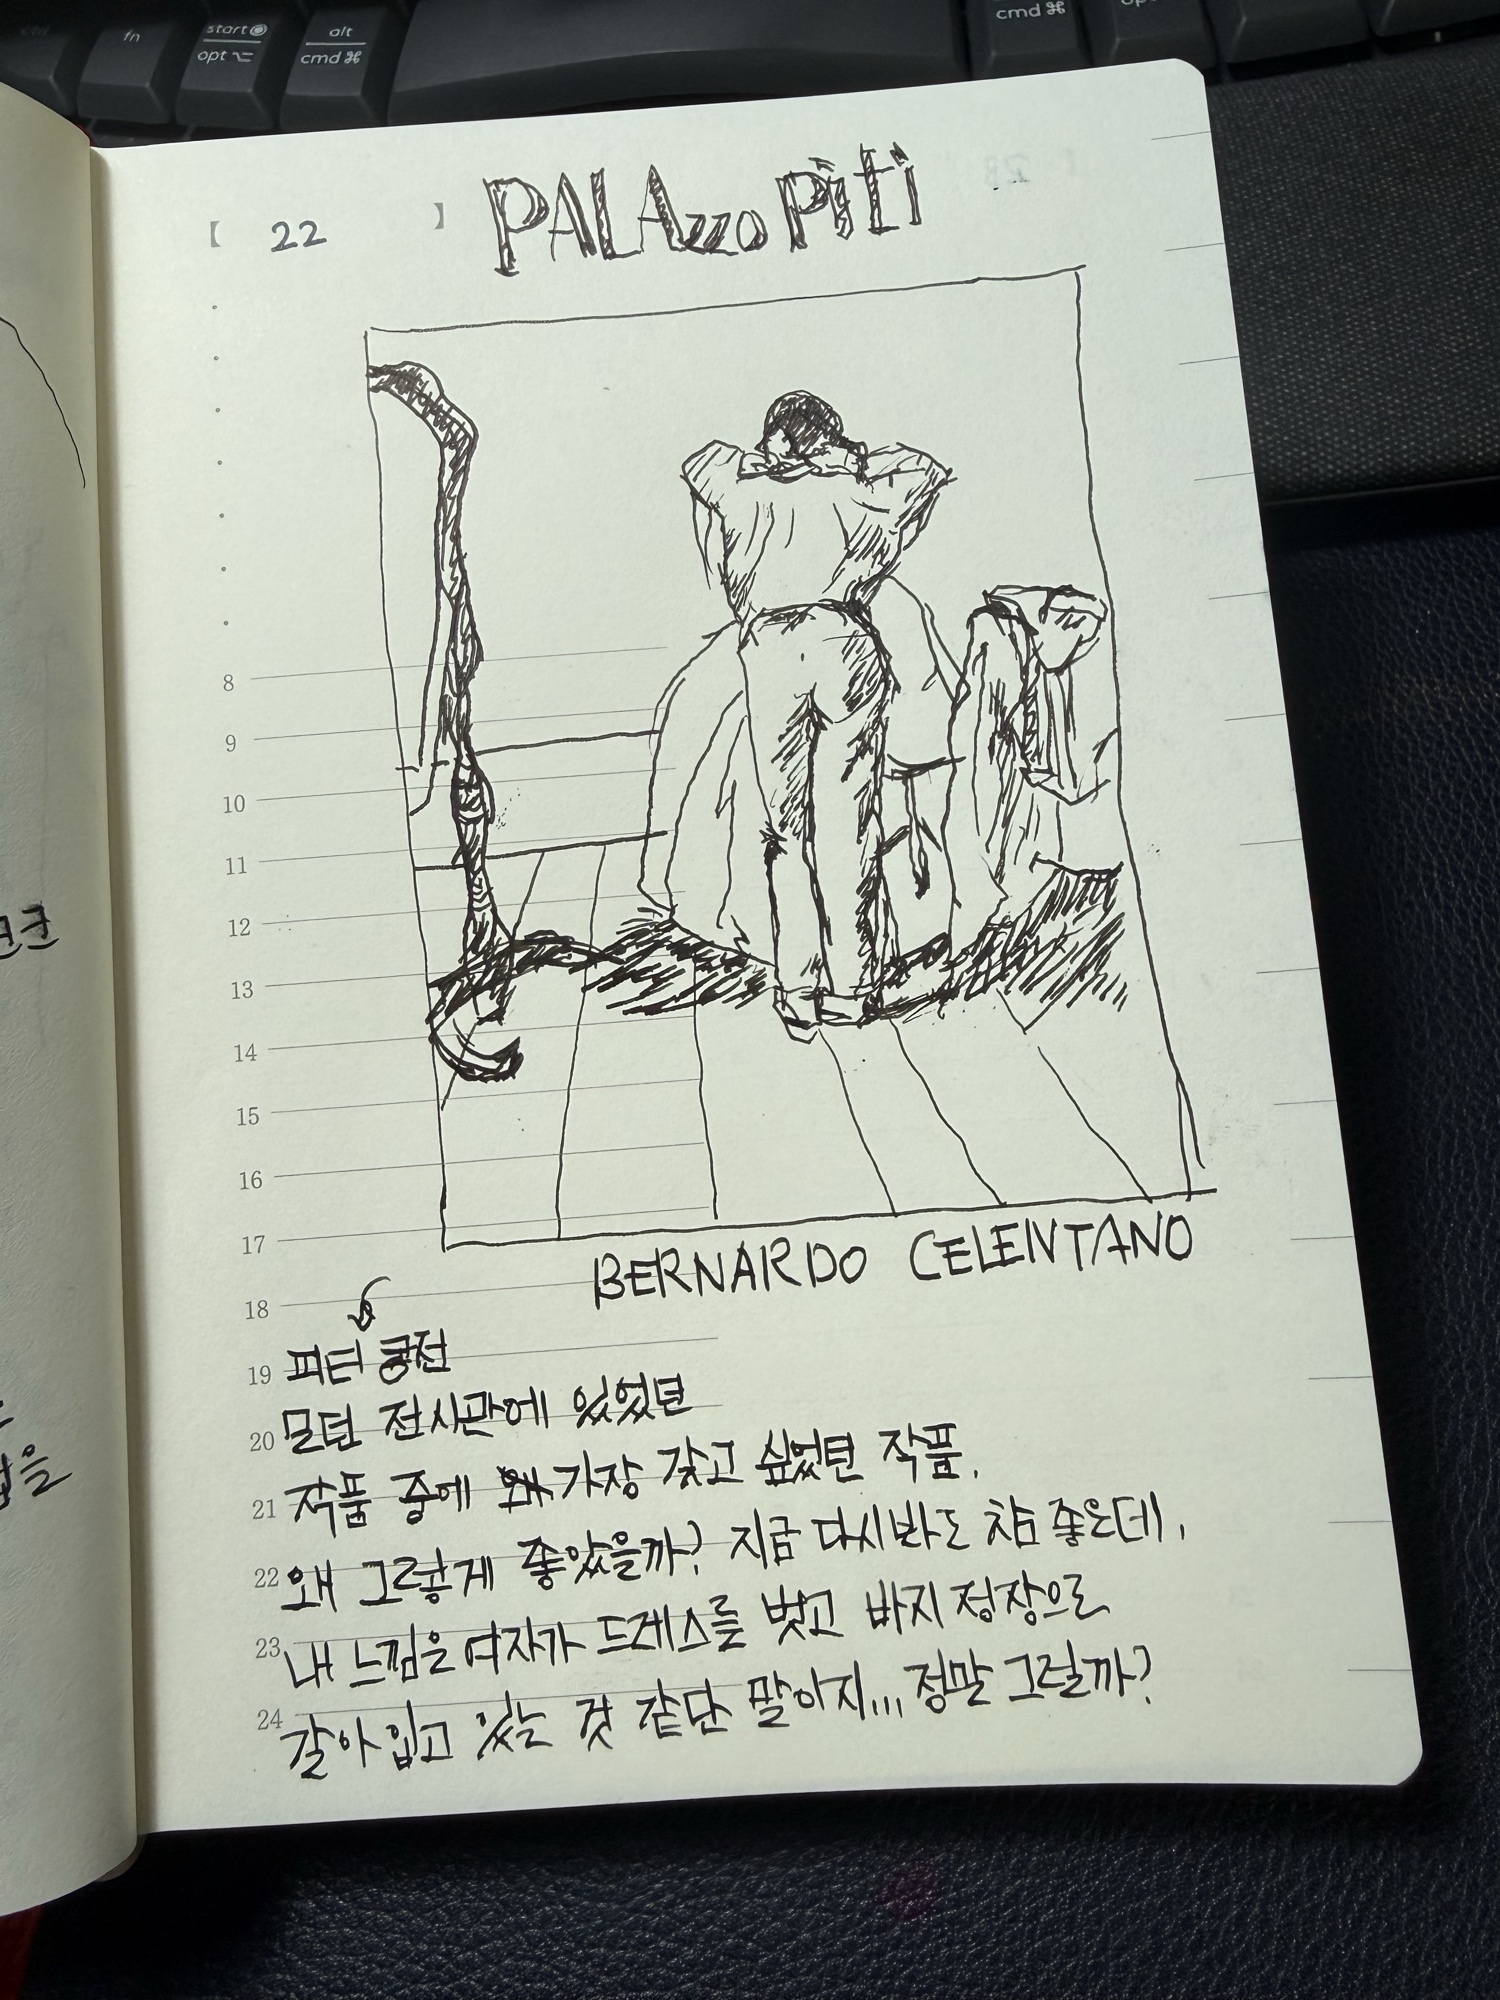 fn
start
opt
alt
cmd ⌘
cmd ⌘
【 22 】 PALAzzo Piti
8
9
10
11
12
13
14
15
16
17
BERNARDO CELENTANO
18
19 피티 궁전
20 모던 전시관에 있었던
21 작품 중에 가장 갖고 싶었던 작품.
22 왜 그렇게 좋았을까? 지금 다시봐도 참 좋은데,
23 내 느낌은 여자가 드레스를 벗고 바지 정장으로
24 갈아입고 있는 것 같단 말이지... 정말 그럴까?